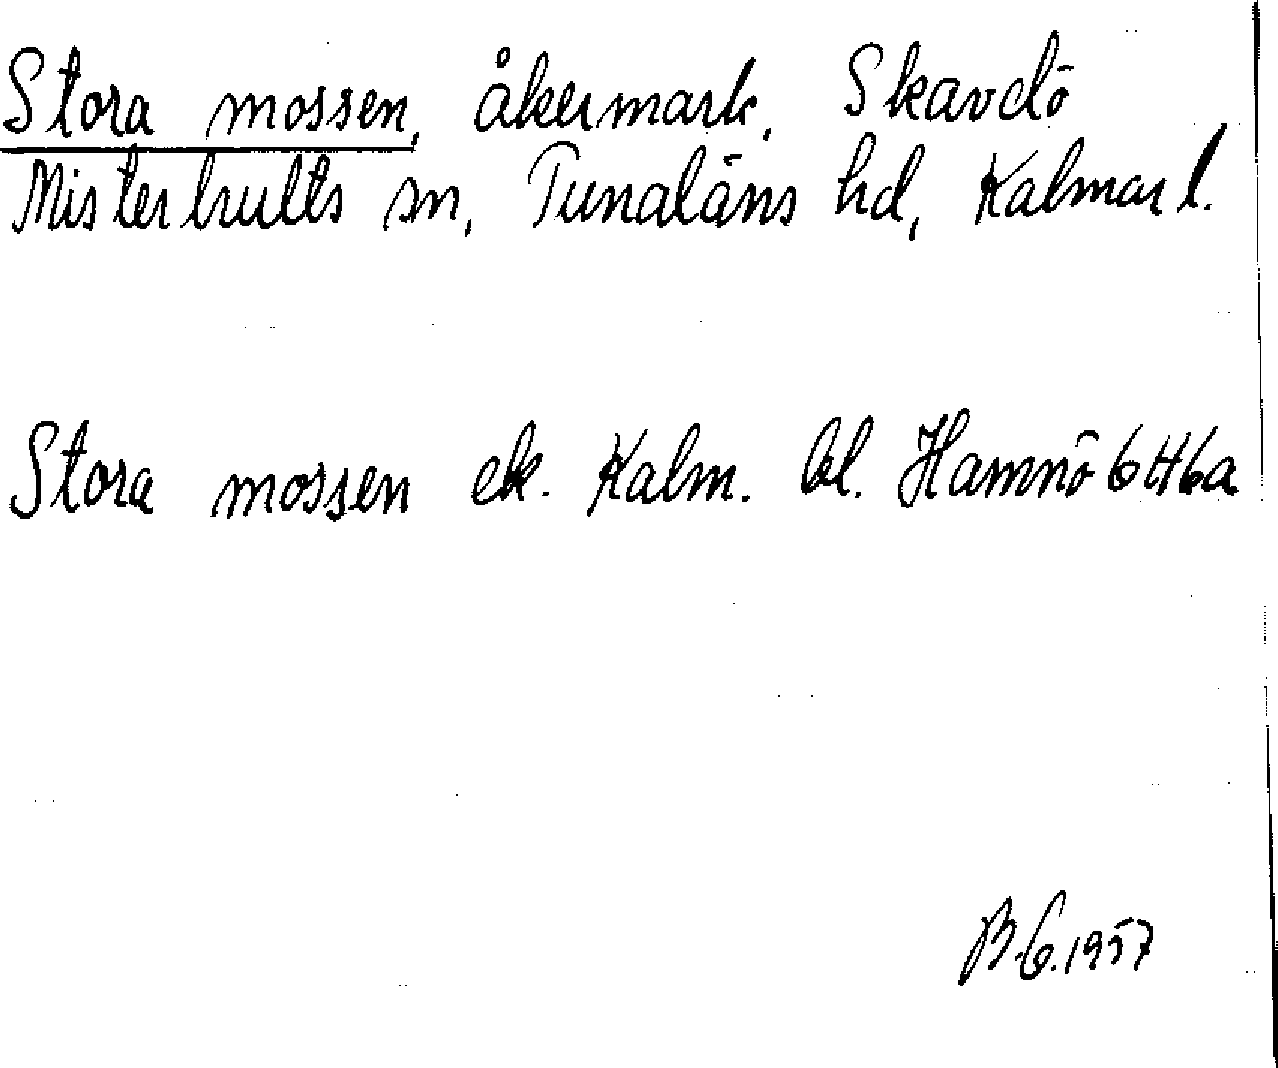 Stora mossen, åkermark, Skavdö
Misterhults sn, Tunaläns hd, Kalmar l.
Stora mossen ek. Kalm. bl. Hamnö 6H6a
B.G. 1957